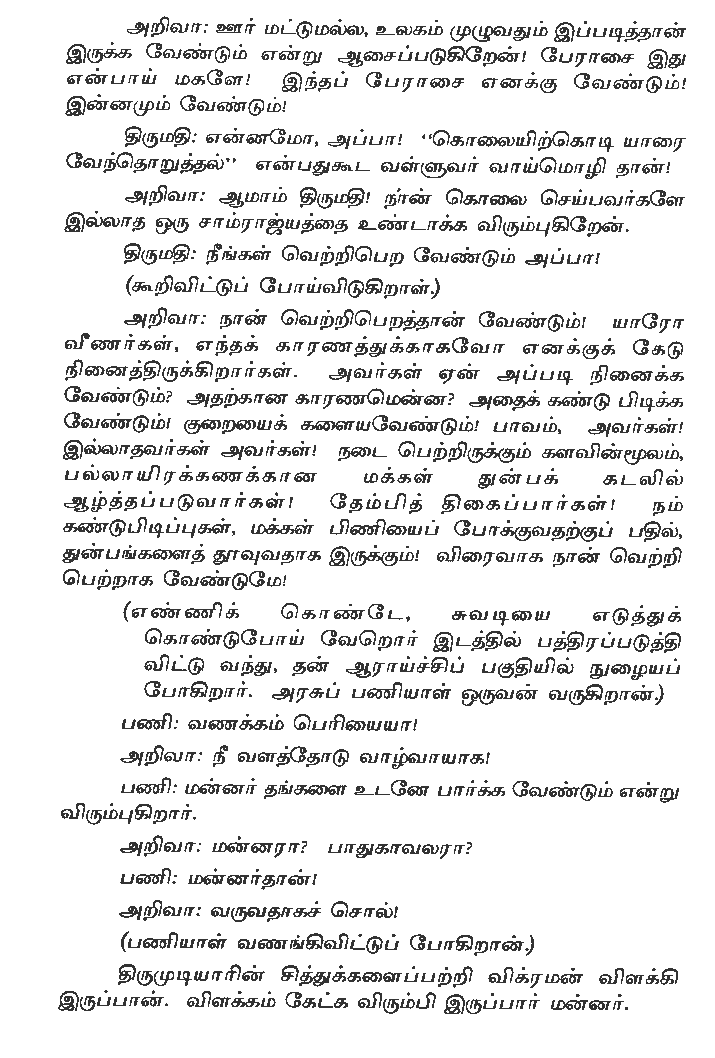 அறிவா: ஊர் மட்டுமல்ல, உலகம் முழுவதும் இப்படித்தான்
இருக்க வேண்டும் என்று ஆசைப்படுகிறேன்! பேராசை இது
என்பாய் மகளே! இந்தப் பேராசை எனக்கு வேண்டும்!
இன்னமும் வேண்டும்!
திருமதி: என்னமோ, அப்பா! “கொலையிற்கொடி யாரை
வேந்தொறுத்தல்” என்பதுகூட வள்ளுவர் வாய்மொழி தான்!
அறிவா: ஆமாம் திருமதி! நான் கொலை செய்பவர்களே
இல்லாத ஒரு சாம்ராஜ்யத்தை உண்டாக்க விரும்புகிறேன்.
திருமதி: நீங்கள் வெற்றிபெற வேண்டும் அப்பா!
(கூறிவிட்டுப் போய்விடுகிறாள்.)
அறிவா: நான் வெற்றிபெறத்தான் வேண்டும்! யாரோ
வீணர்கள், எந்தக் காரணத்துக்காகவோ எனக்குக் கேடு
நினைத்திருக்கிறார்கள். அவர்கள் ஏன் அப்படி நினைக்க
வேண்டும்? அதற்கான காரணமென்ன? அதைக் கண்டு பிடிக்க
வேண்டும்! குறையைக் களையவேண்டும்! பாவம், அவர்கள்!
இல்லாதவர்கள் அவர்கள்! நடை பெற்றிருக்கும் களவின்மூலம்,
பல்லாயிரக்கணக்கான மக்கள் துன்பக் கடலில்
ஆழ்த்தப்படுவார்கள்! தேம்பித் திகைப்பார்கள்! நம்
கண்டுபிடிப்புகள், மக்கள் பிணியைப் போக்குவதற்குப் பதில்,
துன்பங்களைத் தூவுவதாக இருக்கும்! விரைவாக நான் வெற்றி
பெற்றாக வேண்டுமே!
(எண்ணிக் கொண்டே, சுவடியை எடுத்துக்
கொண்டுபோய் வேறொர் இடத்தில் பத்திரப்படுத்தி
விட்டு வந்து, தன் ஆராய்ச்சிப் பகுதியில் நுழையப்
போகிறார். அரசுப் பணியாள் ஒருவன் வருகிறான்.)
பணி: வணக்கம் பெரியையா!
அறிவா: நீ வளத்தோடு வாழ்வாயாக!
பணி: மன்னர் தங்களை உடனே பார்க்க வேண்டும் என்று
விரும்புகிறார்.
அறிவா: மன்னரா? பாதுகாவலரா?
பணி: மன்னர்தான்!
அறிவா: வருவதாகச் சொல்!
(பணியாள் வணங்கிவிட்டுப் போகிறான்.)
திருமுடியாரின் சித்துக்களைப்பற்றி விக்ரமன் விளக்கி
இருப்பான். விளக்கம் கேட்க விரும்பி இருப்பார் மன்னர்.